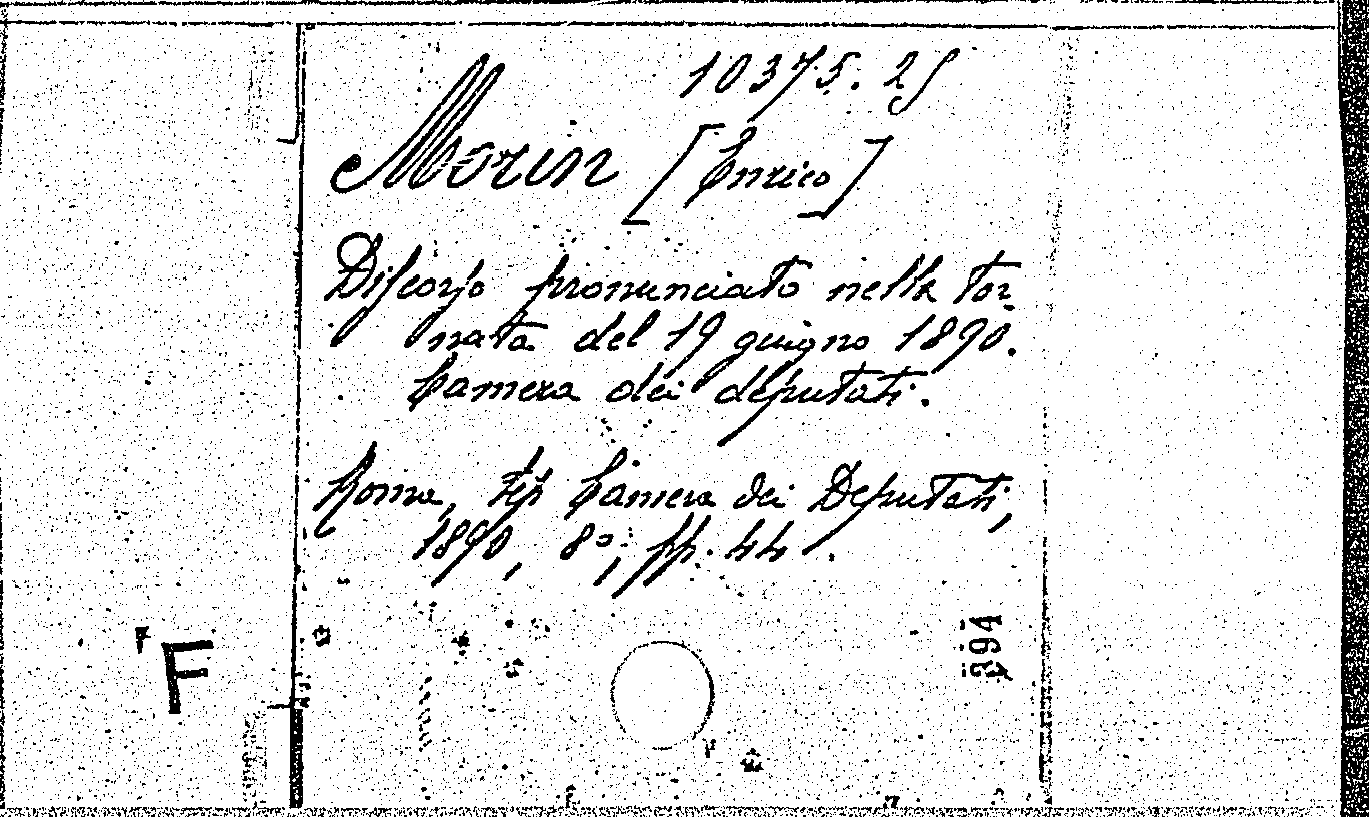 10375. 25
Morin [Enrico]
Discorso pronunciato nella tor-
nata del 19 giugno 1890.
Camera dei deputati.
Roma, tip Camera dei Deputati,
1890, 8°, pp. 44.
F
394